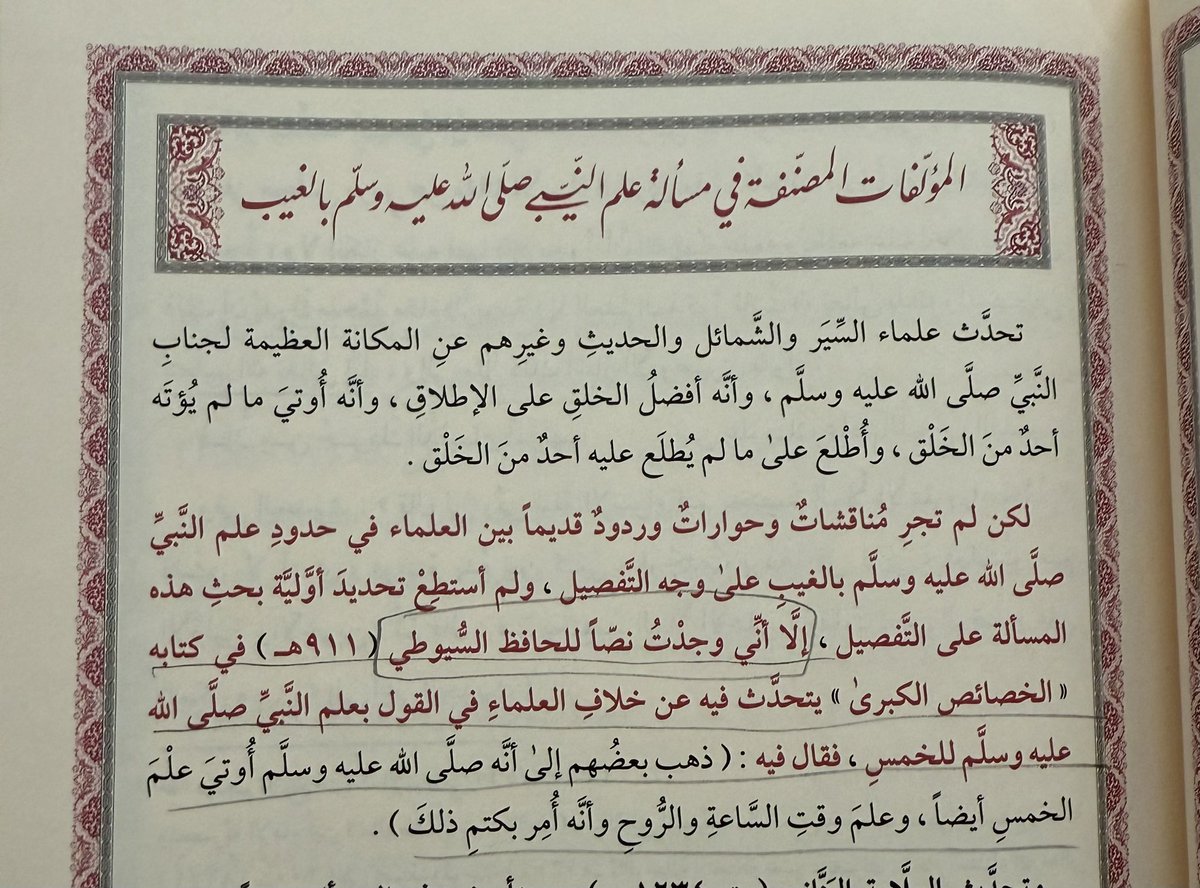 المؤلّفات المصنّفة في مسألة علم النّبيّ صلّى الله عليه وسلّم بالغيب
تحدَّث علماء السِّيَر والشَّمائل والحديثِ وغيرِهم عنِ المكانة العظيمة لجنابِ
النَّبيِّ صلَّى الله عليه وسلَّم ، وأنَّه أفضلُ الخلقِ على الإطلاقِ ، وأنَّه أُوتيَ ما لم يُؤتَه
أحدٌ منَ الخَلْق ، وأُطْلعَ علىٰ ما لم يُطلَع عليه أحدٌ منَ الخَلْق .
لكن لم تجرِ مُناقشاتٌ وحواراتٌ وردودٌ قديماً بين العلماء في حدودِ علم النَّبيِّ
صلَّى الله عليه وسلَّم بالغيبِ علىٰ وجه التَّفصيل ، ولم أستطِعْ تحديدَ أوَّليَّة بحثِ هذه
المسألة على التَّفصيل ، إلَّا أنِّي وجدْتُ نصّاً للحافظ السُّيوطي ( ٩١١هـ ) في كتابه
« الخصائص الكبرىٰ » يتحدَّث فيه عن خلافِ العلماءِ في القول بعلم النَّبيِّ صلَّى الله
عليه وسلَّم للخمسِ ، فقال فيه : ( ذهب بعضُهم إلىٰ أنَّه صلَّى الله عليه وسلَّم أُوتيَ علْمَ
الخمسِ أيضاً ، وعلمَ وقتِ السَّاعةِ والرُّوحِ وأنَّه أُمِر بكتمِ ذلكَ ) .